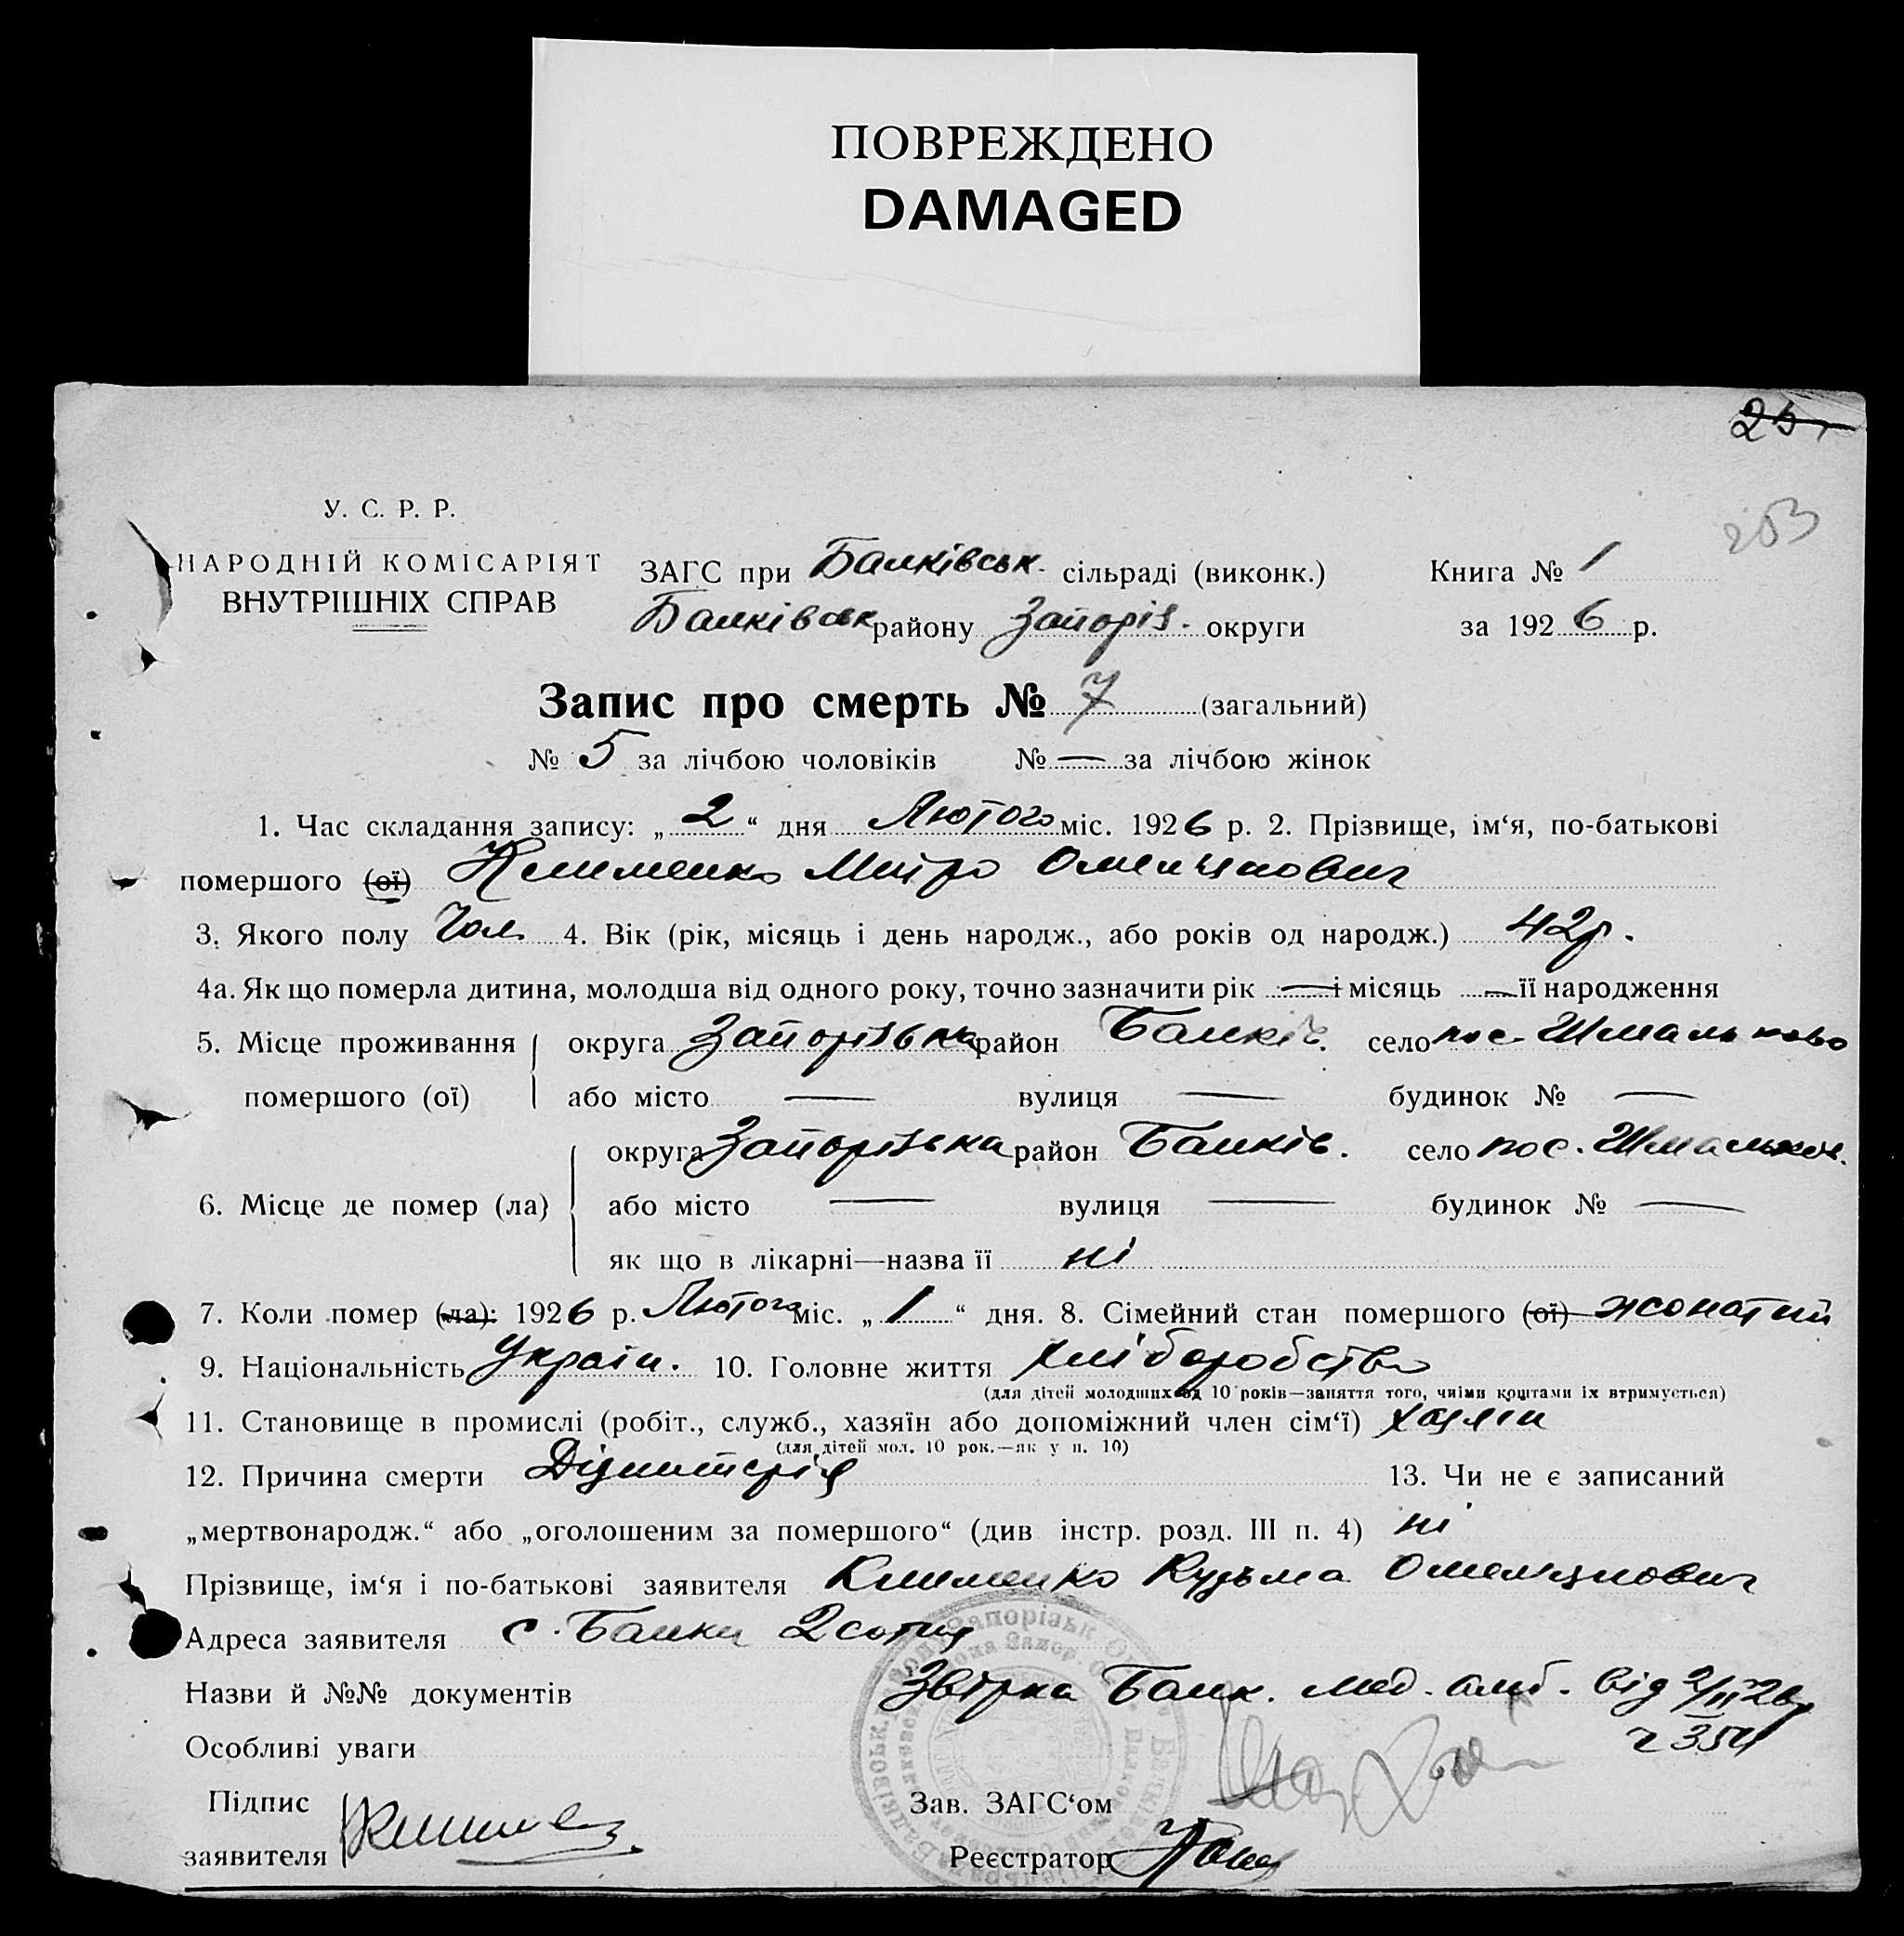 ПОВРЕЖДЕНО
DAMAGED
25
253
У. С. Р. Р.
НАРОДНІЙ КОМІСАРІЯТ
ВНУТРІШНІХ СПРАВ
ЗАГС при Балківськ. сільраді (виконк.)
Книга № 1
Балківськ району Запоріз. округи
за 1926 р.
Запис про смерть № 7 (загальний)
№ 5 за лічбою чоловіків № — за лічбою жінок
1. Час складання запису: „2“ дня Лютого міс. 1926 р. 2. Прізвище, ім‘я, по-батькові
помершого (ої) Клименко Митро Омелянович
3. Якого полу Чол. 4. Вік (рік, місяць і день народж., або років од народж.) 42 р.
4а. Як що померла дитина, молодша від одного року, точно зазначити рік — і місяць — її народження
5. Місце проживання округа Запорізька район Балків. село пос. Шмальково
помершого (ої) або місто — вулиця — будинок № —
округа Запорізька район Балків. село пос. Шмальков.
6. Місце де помер (ла) або місто — вулиця — будинок № —
як що в лікарні—назва її ні
7. Коли помер (ла): 1926 р. Лютого міс. „1“ дня. 8. Сімейний стан помершого (ої) жонатий
9. Національність Україн. 10. Головне життя хліборобство
(для дітей молодших од 10 років—заняття того, чиїми коштами їх втримується)
11. Становище в промислі (робіт., служб., хазяїн або допоміжний член сім‘ї) хазяїн
(для дітей мол. 10 рок.—як у п. 10)
12. Причина смерти Дізинтерія 13. Чи не є записаний
„мертвонародж.“ або „оголошеним за помершого“ (див інстр. розд. III п. 4) ні
Прізвище, ім‘я і по-батькові заявителя Клименко Кузьма Омелянович
Адреса заявителя с. Балки 2 сотня
Назви й №№ документів Звірка Балк. мед. амб. від 2/II 26 р
Особливі уваги ч 354
Підпис
заявителя
Зав. ЗАГС‘ом
Реєстратор